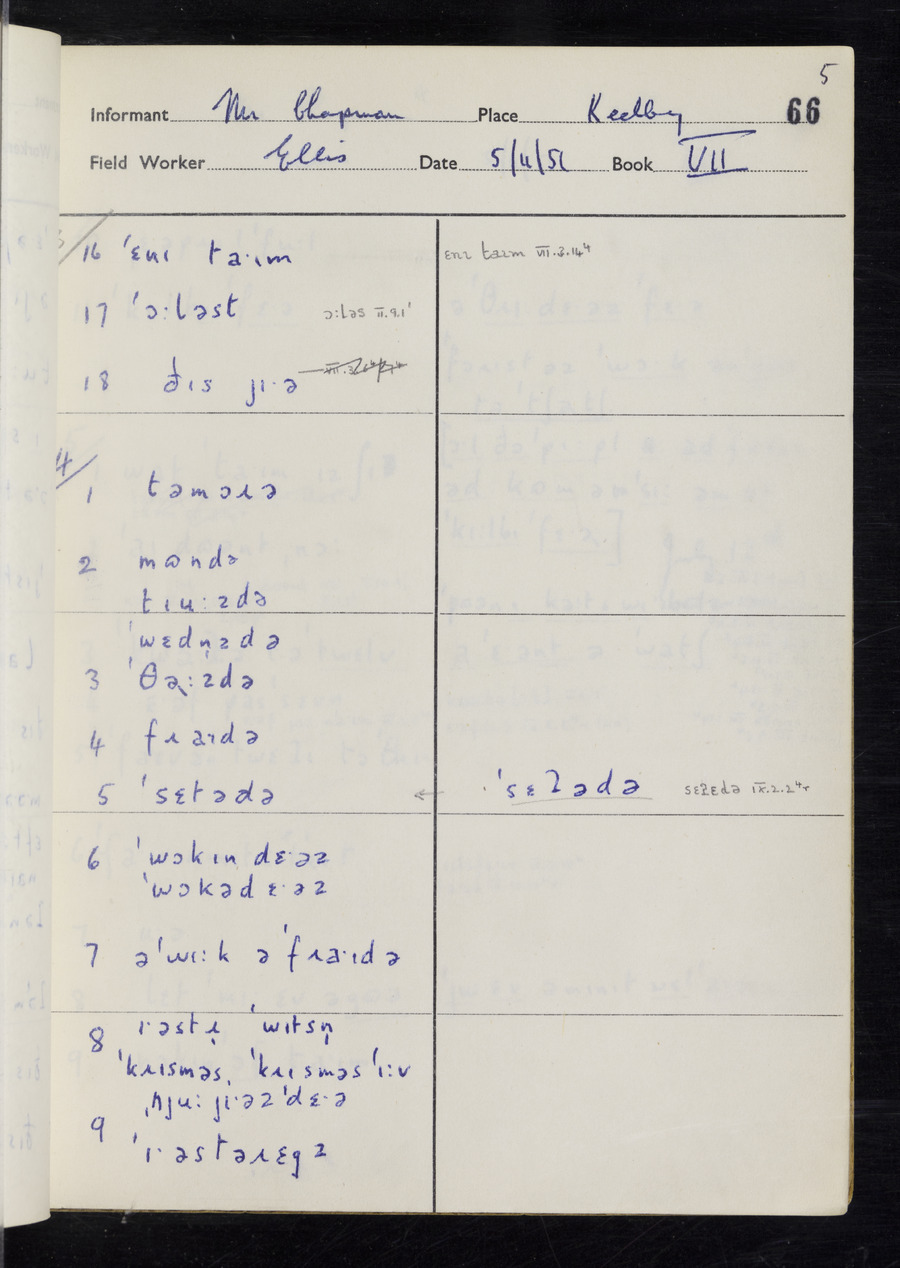 5
Informant Mr Chapman Place Keelby 66
Field Worker Ellis Date 5/11/51 Book VII
16 ˈɛnɪ taˑɪm ɛnɪ taɪm VII.3.14⁴
17 ˈɔːləst ɔːləs II.9.1¹
18 ðɪs jɪˑə
4/
1 təmɔɹə
2 mɷndə
tɪuːzdə
ˈwɛdn̩zdə
3 ˈθəːzdə
4 fɹaɪdə
5 ˈsɛtədə ← ˈsɛʔədə sɛʔɛdə IX.2.2⁴
6 ˈwɔkɪndɛˑəz
ˈwɔkədɛˑəz
7 əˈwɪːk əˈfɹaˑɪdə
8 ˈɪˑəstɹ̩ ˈwɪtsn̩
ˈkɹɪsməs, ˈkɹɪsməsˈɪːv
ˌnjuːjɪˑəzˈdɛˑə
9 ˈɪˑəstəɹɛgz